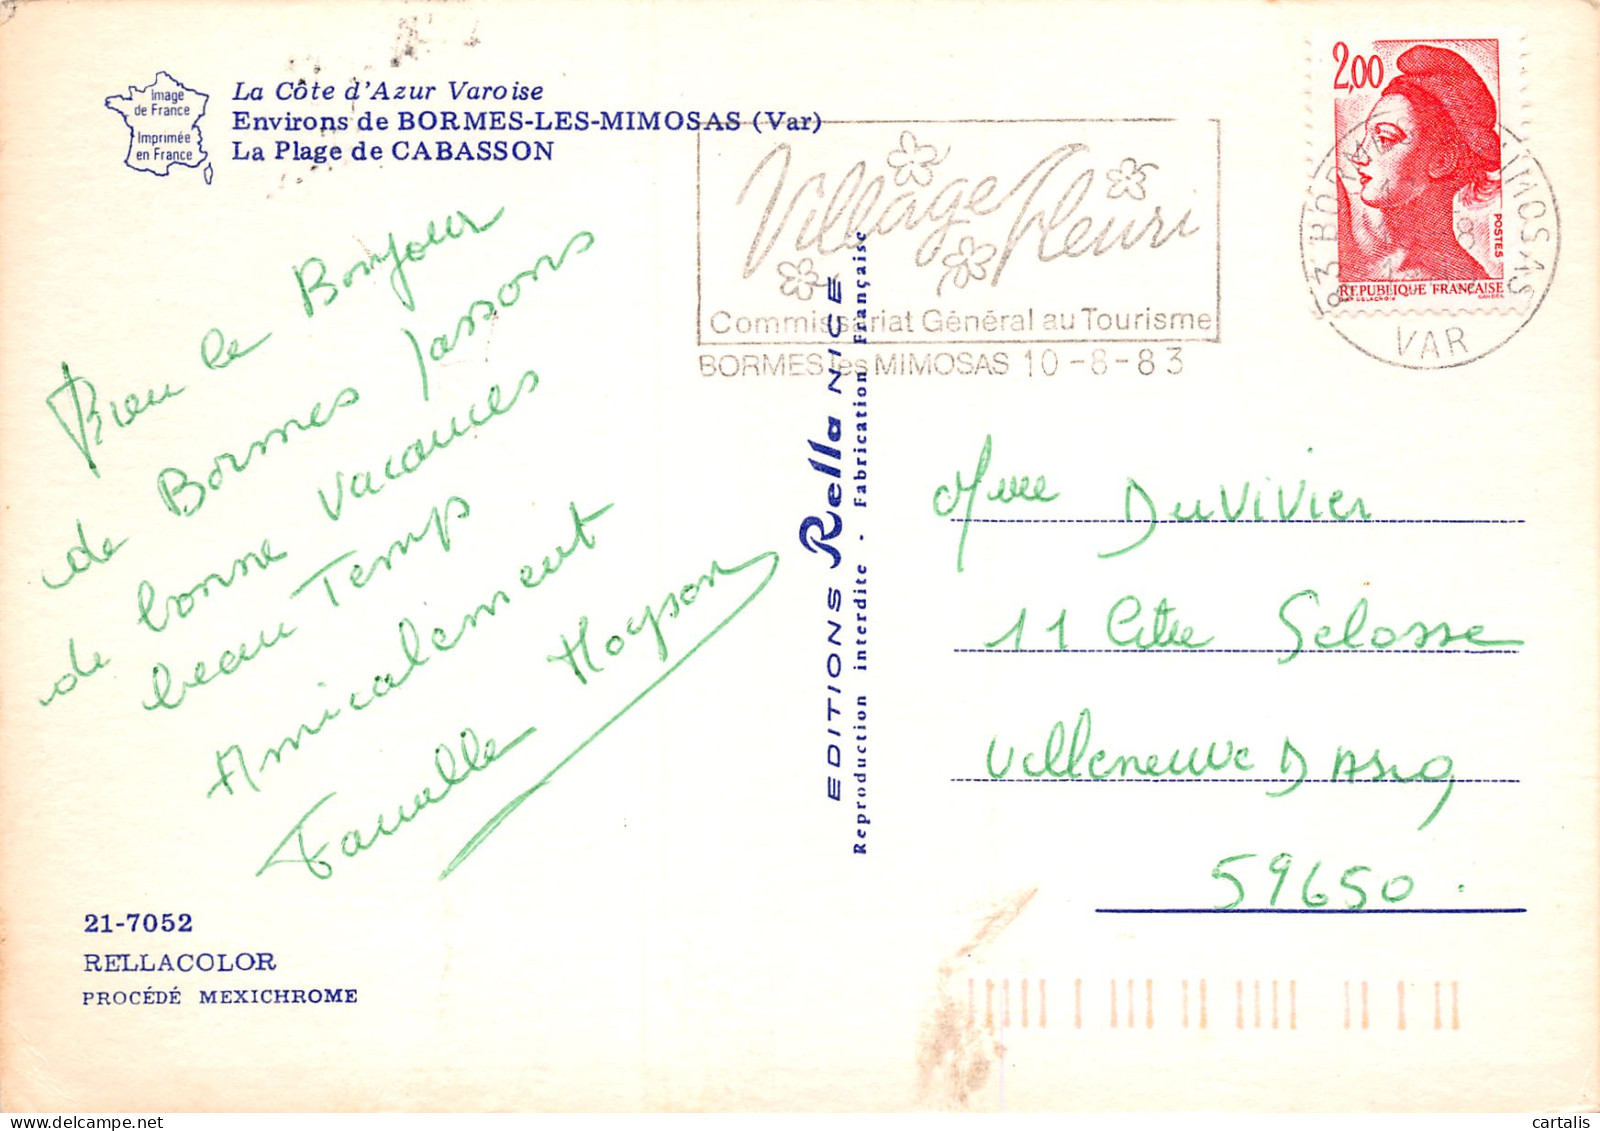 Image
de France
Imprimée
en France
La Côte d'Azur Varoise
Environs de BORMES-LES-MIMOSAS (Var)
La Plage de CABASSON
Bien le Bonjour
de Bormes Passons
de bonne vacances
beau Temps
Amicalement
Famille
21-7052
RELLACOLOR
PROCÉDÉ MEXICHROME
EDITIONS Rella NICE
Reproduction interdite - Fabrication Française
Village Fleuri
Commissariat Général au Tourisme
BORMES les MIMOSAS 10-8-83
2,00
POSTES
REPUBLIQUE FRANÇAISE
VAR
Mme Duvivier
11 Cité Selosse
Villeneuve D Ascq
59650.
cartalis